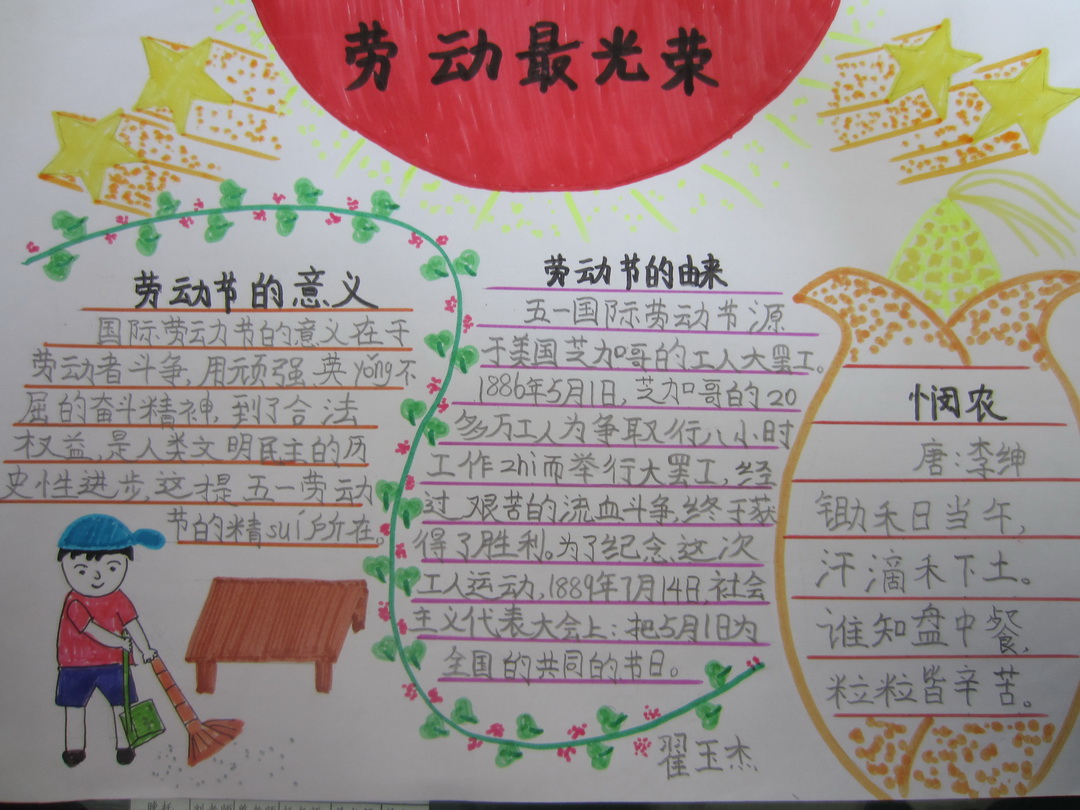 劳动最光荣
劳动节的意义
国际劳动节的意义在于
劳动者斗争,用顽强、英yǒng不
屈的奋斗精神,到了合法
权益,是人类文明民主的历
史性进步,这才提五一劳动
节的精suí所在。
劳动节的由来
五一国际劳动节源
于美国芝加哥的工人大罢工。
1886年5月1日,芝加哥的20
多万工人为争取行八小时
工作zhì而举行大罢工,经
过艰苦的流血斗争,终于获
得了胜利。为了纪念这次
工人运动,1889年7月14日,社会
主义代表大会上:把5月1日为
全国的共同的节日。
翟玉杰
悯农
唐:李绅
锄禾日当午,
汗滴禾下土。
谁知盘中餐,
粒粒皆辛苦。